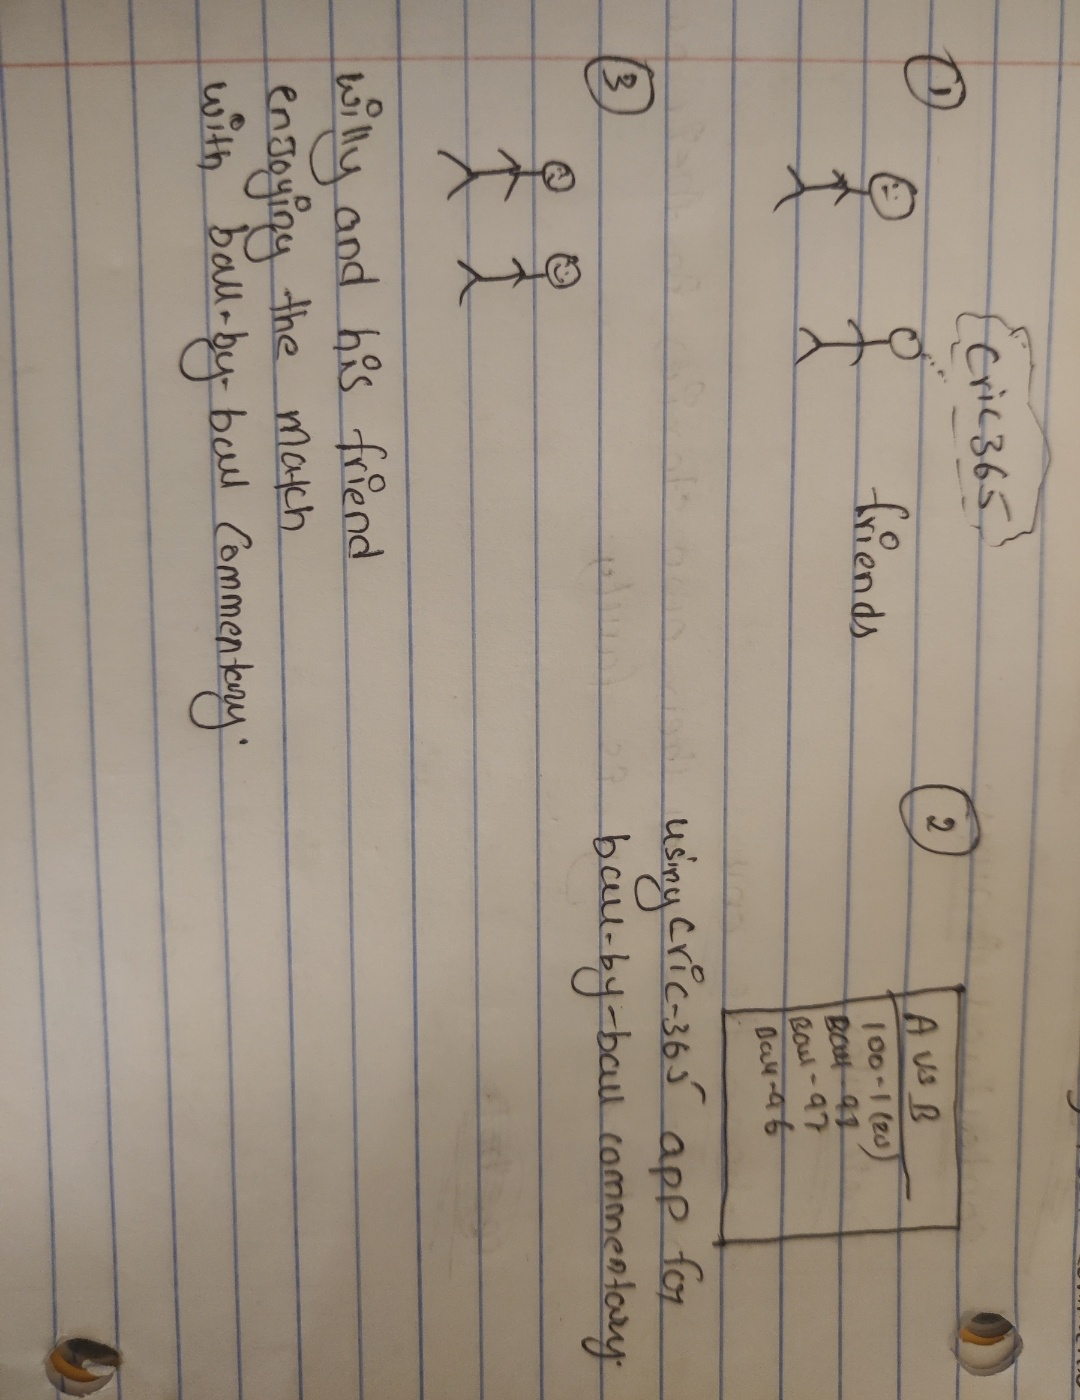 1
Cric365
friends
2
A vs B
100-1 (20)
Ball-98
Ball-97
Ball-96
using Cric-365 app for
ball-by-ball commentary.
3
willy and his friend
enjoying the match
with ball-by-ball Commentary.